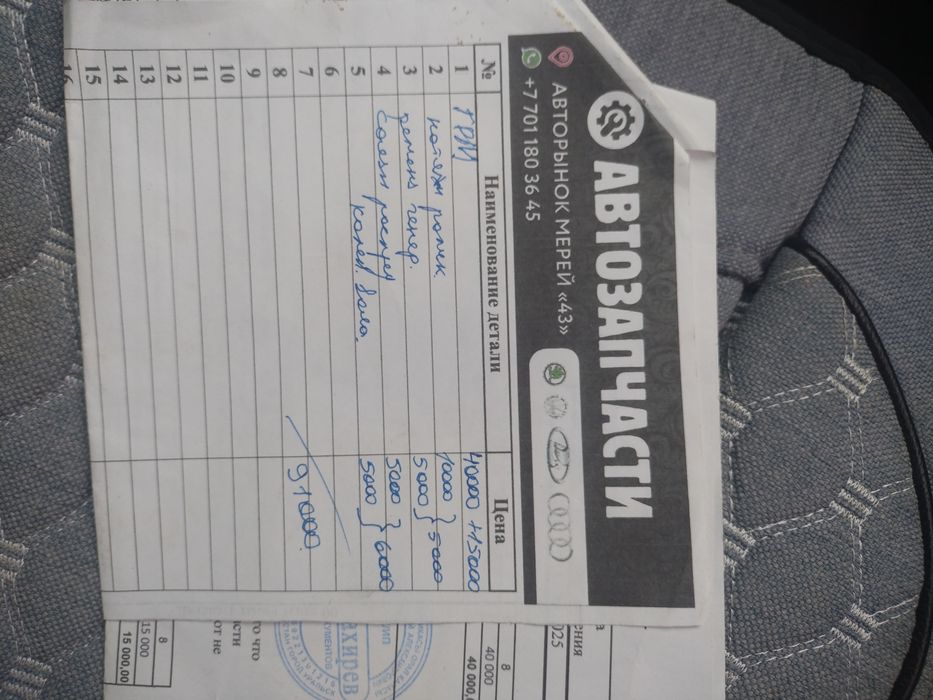 АВТОЗАПЧАСТИ
АВТОРЫНОК МЕРЕЙ «43»
+7 701 180 36 45
№ Наименование детали Цена
1 ГРМ 40000 + 15000
2 натяжн ролик. 10000 } 5000
3 ремень генер. 5000
4 салезн распред 5000 } 6000
5 колен. вала. 5000
6
7 91000.
8
9
10
11
12
13
14
15
16
ения
025
8
40 000
40 000,
УМЕНТОВ
ахирев
о что
сти
от не
8
15 000
15 000,00